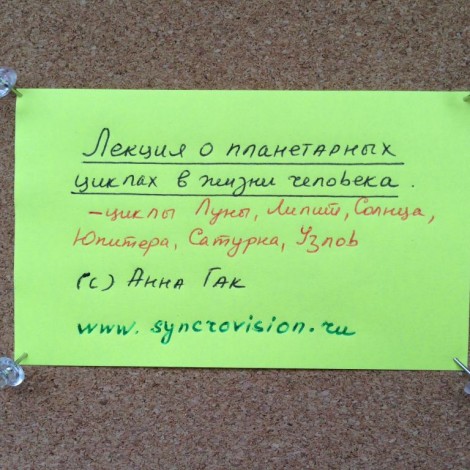 Лекция о планетарных
циклах в жизни человека.
– циклы Луны, Лилит, Солнца,
Юпитера, Сатурна, Узлов
(c) Анна Гак
www.syncrovision.ru